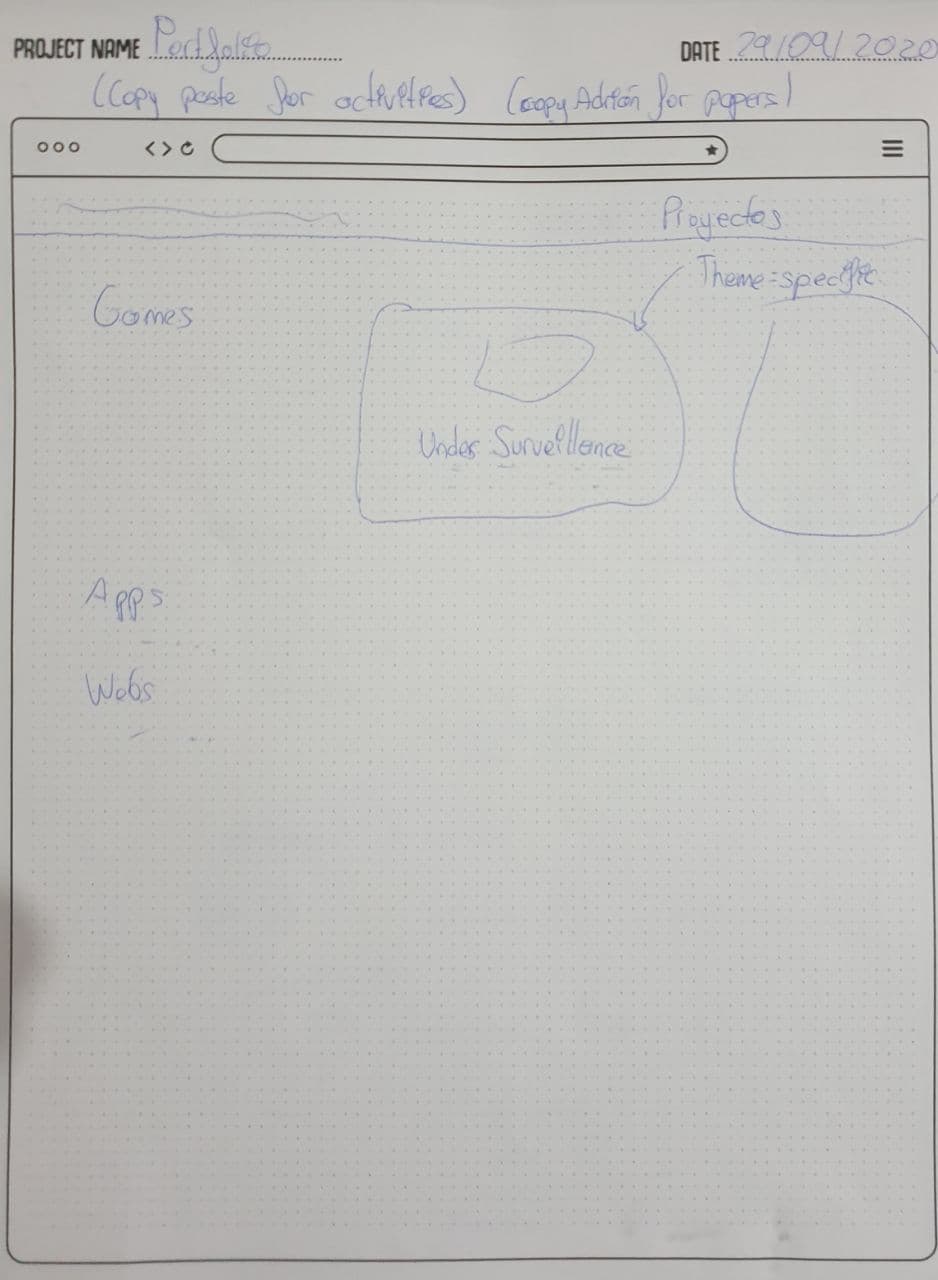 PROJECT NAME Portfolio DATE 29/09/2020
(Copy paste for activities) (copy Adrián for papers)
Proyectos
Theme-specific
Games
Under Surveillance
Apps
Webs